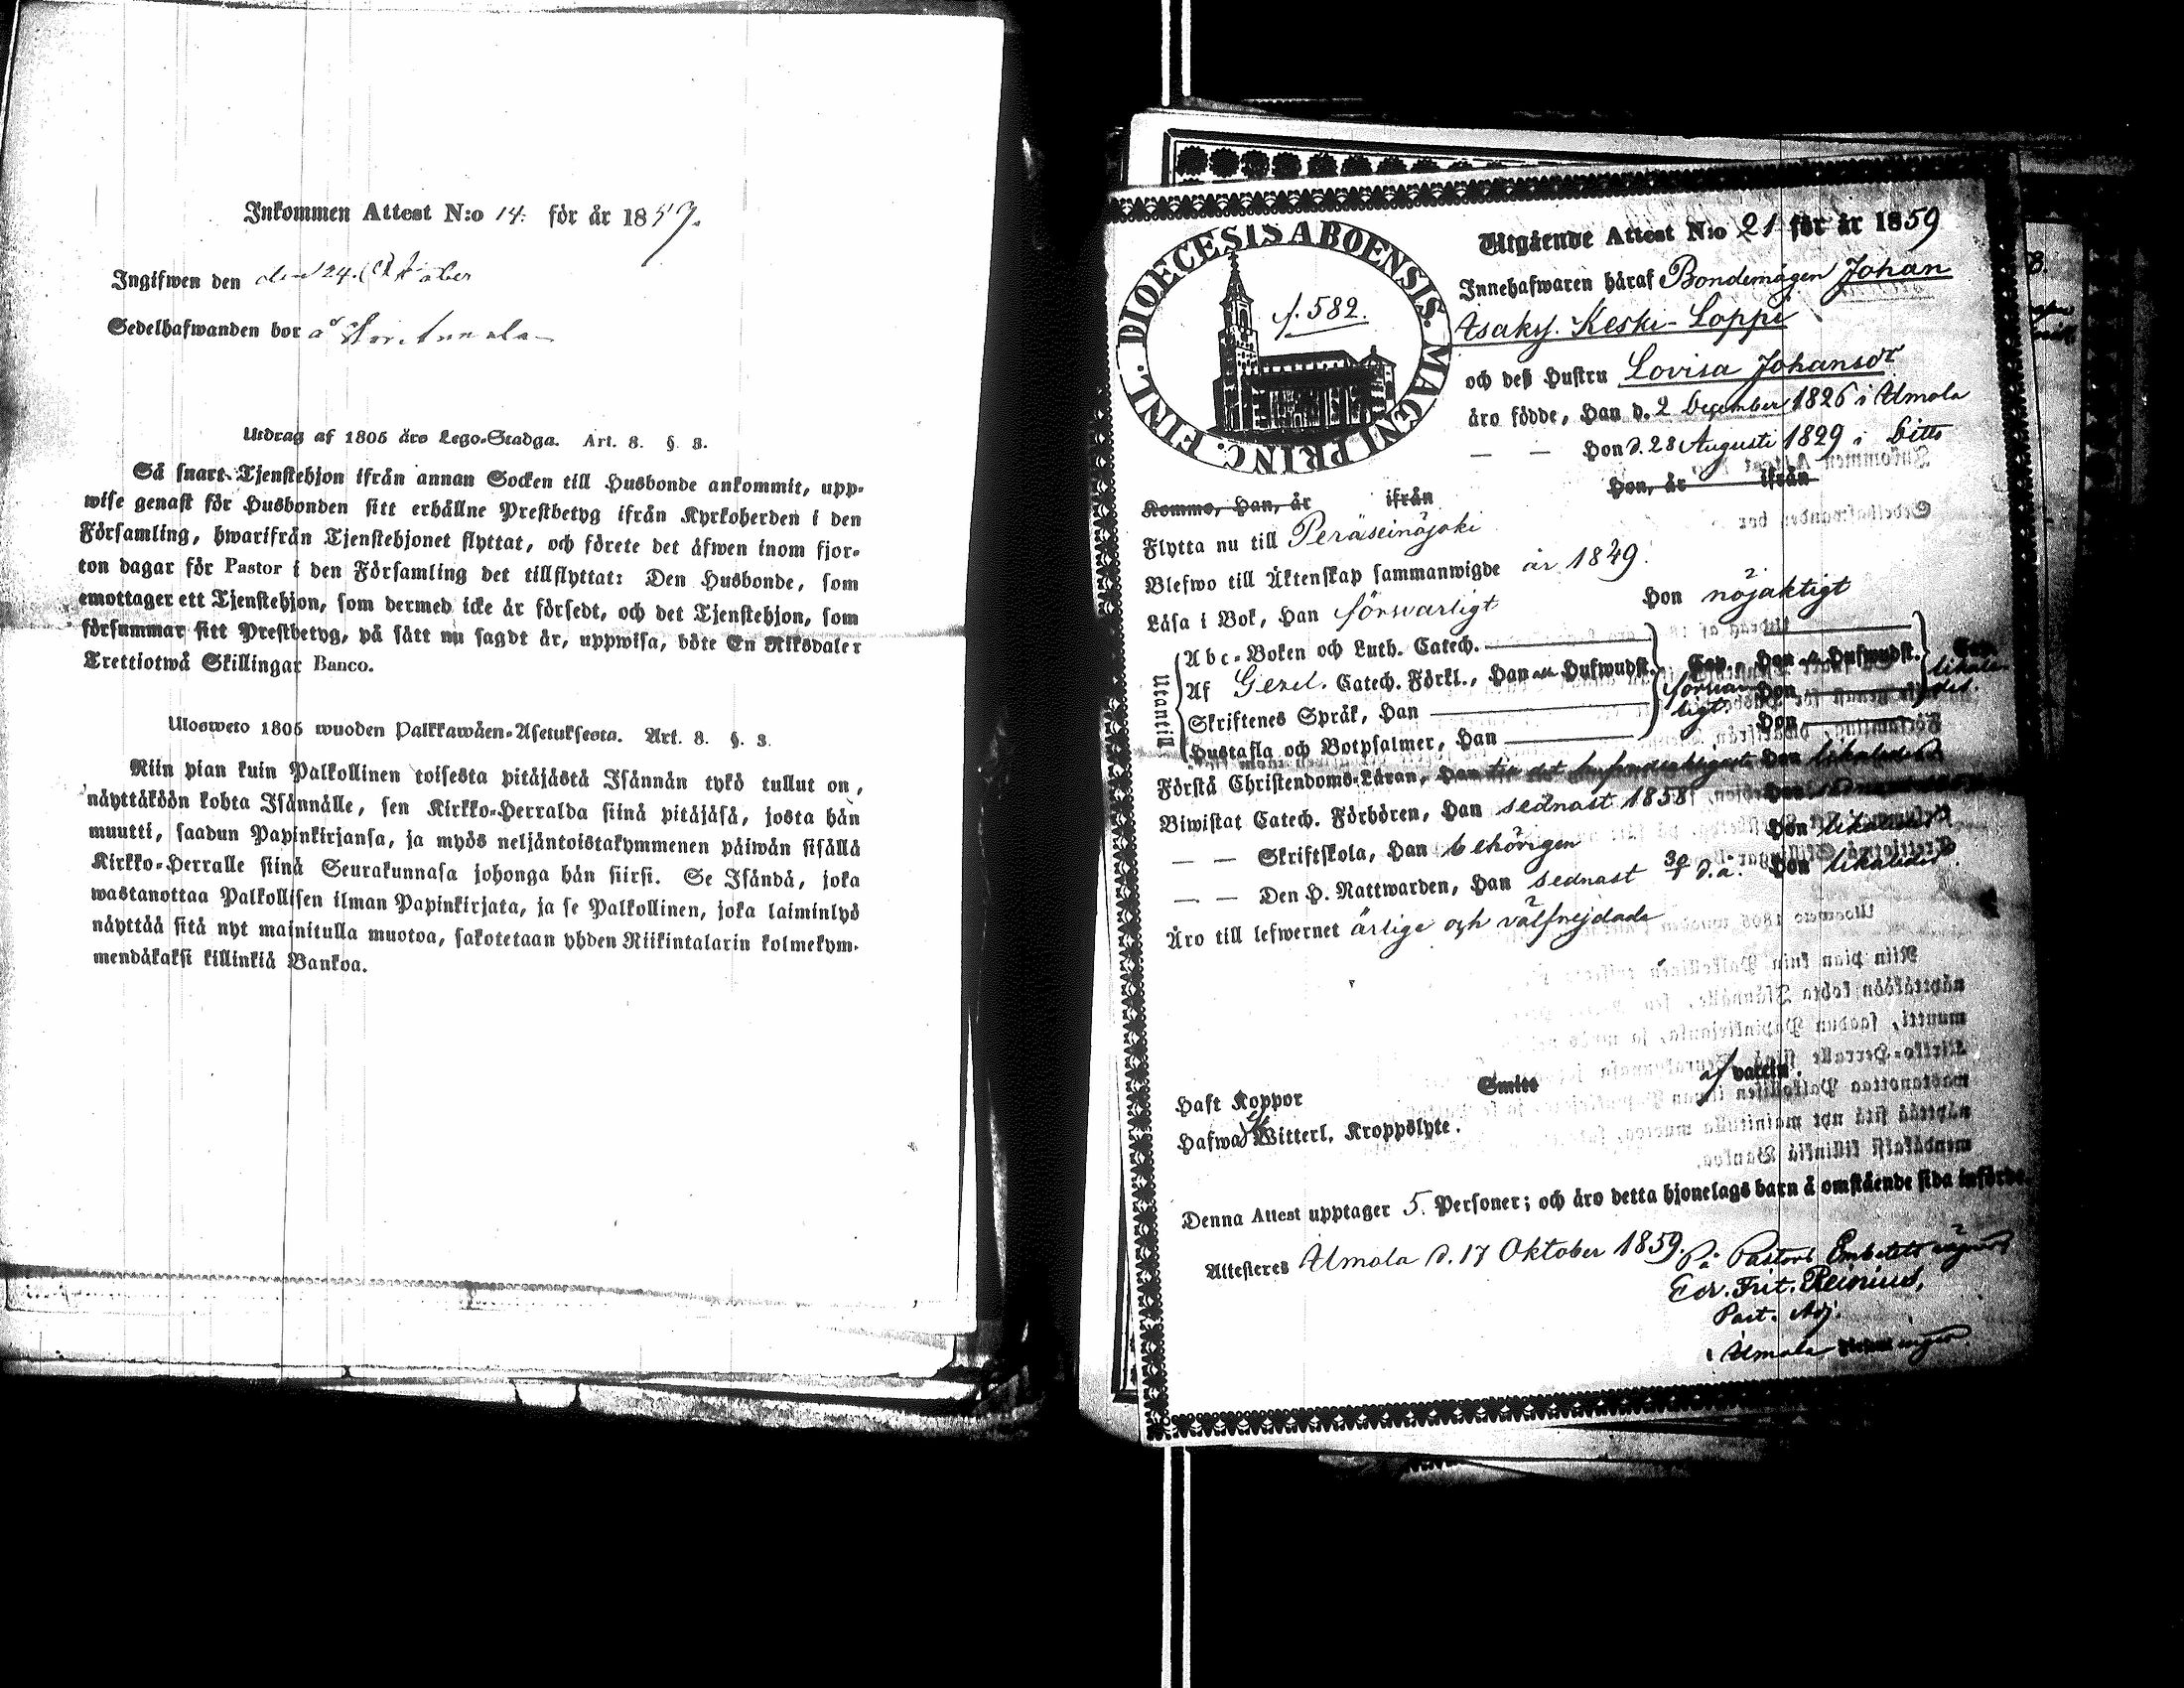 Inkommen Attest N:o 14. för år 1857.
Ingifwen den den 24. October
Sedelhafwanden bor å
Utdrag af 1805 års Lego-Stadga. Art. 8. §. 3.
Så snart Tjenstehjon ifrån annan Socken till Husbonde ankommit, upp-
wise genast för Husbonden sitt erhållne Prestbetyg ifrån Kyrkoherden i den
Församling, hwarifrån Tjenstehjonet flyttat, och förete det äfwen inom fjor-
ton dagar för Pastor i den Församling det tillflyttat: Den Husbonde, som
emottager ett Tjenstehjon, som dermed icke är försedt, och det Tjenstehjon, som
försummar sitt Prestbetyg, på sätt nu sagdt är, uppwisa, böte En Riksdaler
Trettiotwå Skillingar Banco.
Ulosweto 1805 wuoden Palkkawäen-Asetuksesta. Art. 8. §. 3.
Niin pian kuin Palkollinen toisesta pitäjästä Isännän tykö tullut on,
näyttäköön kohta Isännälle, sen Kirkko-Herralda siinä pitäjäsä, josta hän
muutti, saadun Papinkirjansa, ja myös neljäntoistakymmenen päiwän sisällä
Kirkko-Herralle siinä Seurakunnasa johonga hän siirsi. Se Isändä, joka
wastanottaa Palkollisen ilman Papinkirjata, ja se Palkollinen, joka laiminlyö
näyttää sitä nyt mainitulla muotoa, sakotetaan yhden Riikintalarin kolmekym-
mendäkaksi killinkiä Bankoa.
DIOECESIS ABOENSIS. MAGNI PRINC. FINL.
f. 582.
Utgående Attest N:o 21 för år 1859
Innehafwaren häraf Bondemågen Johan
Isaksf. Keski-Loppi
och deß Hustru Lovisa Johansdr
äro födde, Han d. 2 December 1826 i Ilmola
— — Hon d. 28 Augusti 1829 i ditto
Komme, Han, år ifrån Hon, år ifrån
Flytta nu till Peräseinäjoki
Blefwo till Äktenskap sammanwigde år 1849.
Läsa i Bok, Han försvarligt Hon nöjaktigt
Utantill
Abc-Boken och Luth. Catech.
Af Gezel. Catech. Förkl., Han Hufwudst. Cap., Hon Hufwudst. Cap.
Skriftenes Språk, Han försvarligt Hon likaledes.
Hustafla och Botpsalmer, Han Hon
Förstå Christendoms-Läran, Han Hon likaledes
Biwistat Catech. Förhören, Han sednast 1858 Hon
— — Skriftskola, Han behörigen Hon likaledes
— — Den H. Nattwarden, Han sednast d.a. Hon likaledes
Äro till lefwernet ärlige och välfrejdade
Haft Koppor Smitt af vaccin.
Hafwa Witterl. Kroppslyte.
Denna Attest upptager 5 Personer; och äro detta hjonelags barn å omstående sida införde.
Attesteras Ilmola d. 17 Oktober 1859. På Pastors Embetets vägnar
Edr. Frit. Reinius,
Past. Adj.
i Ilmola